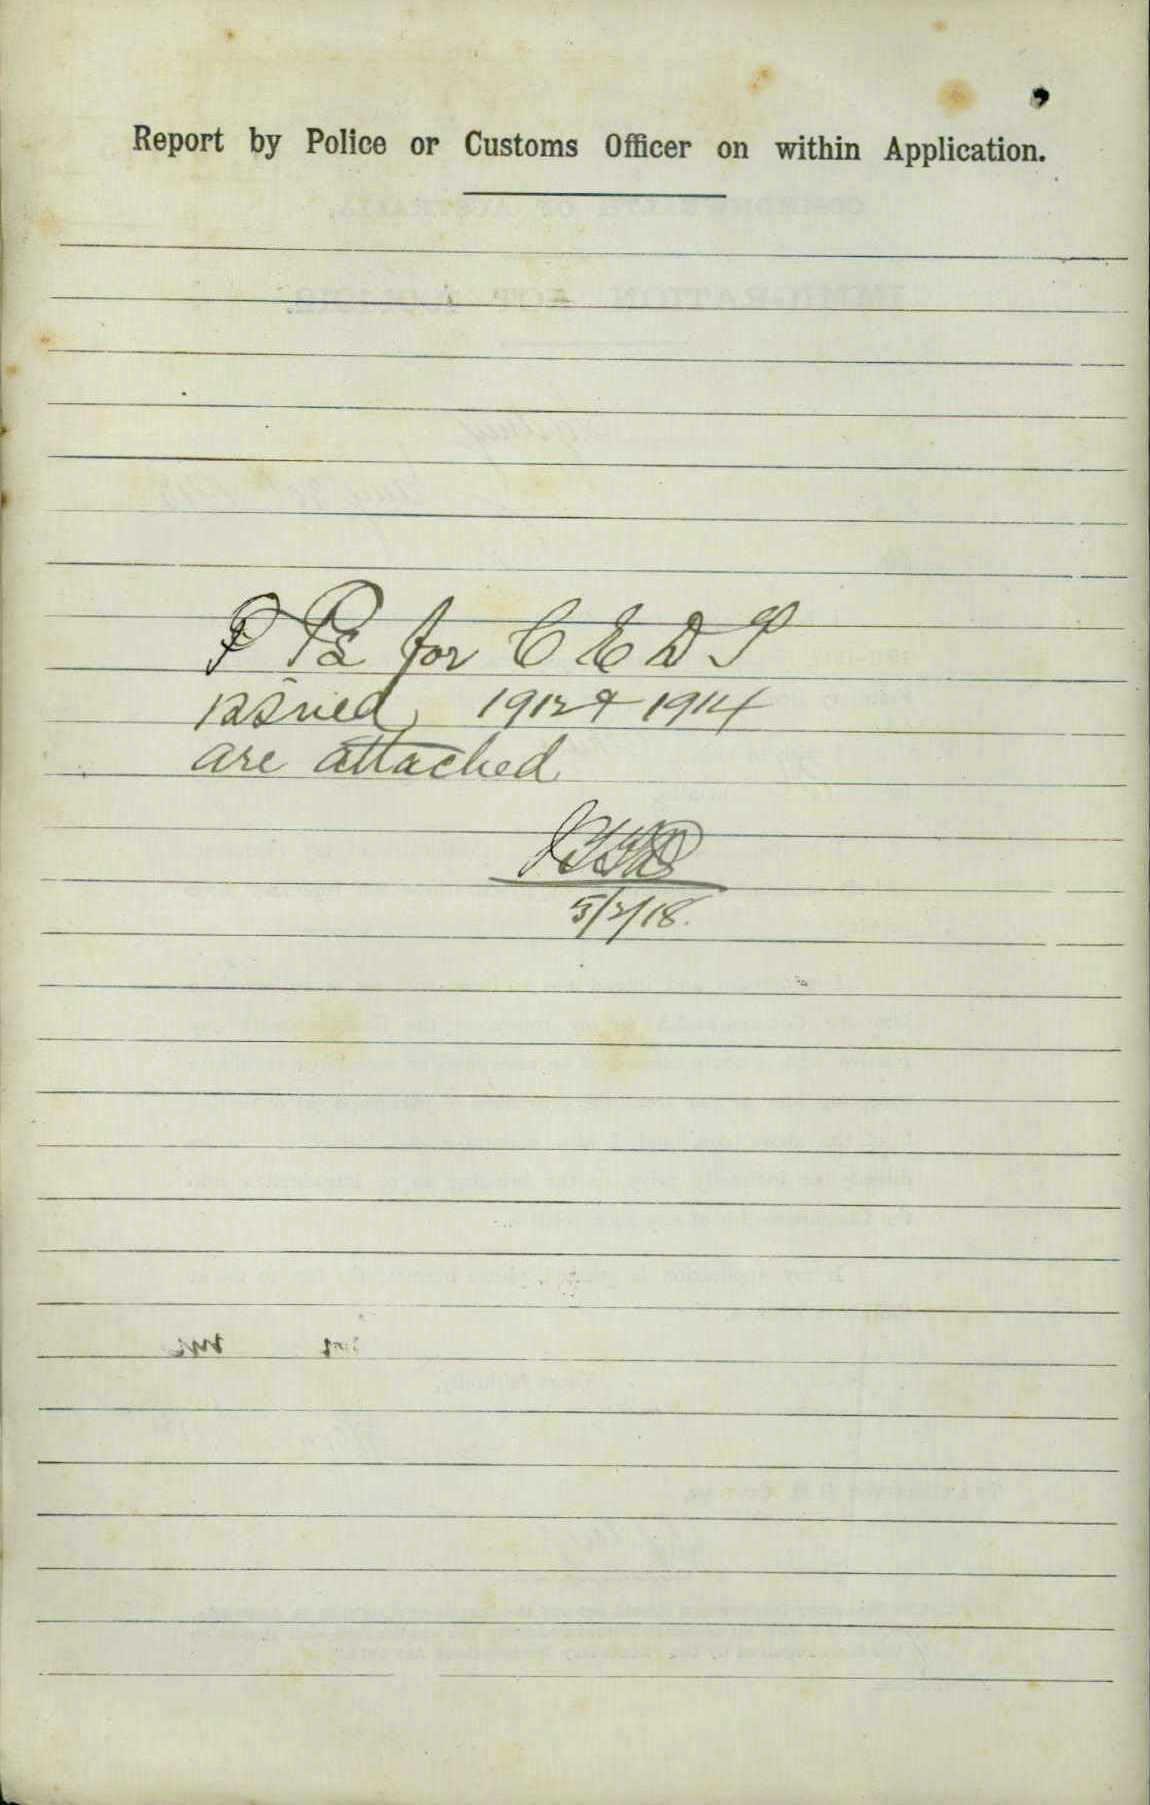 Report by Police or Customs Officer on within Application.
P Ps for C E D T
issued 1912 & 1914
are attached
5/2/18.